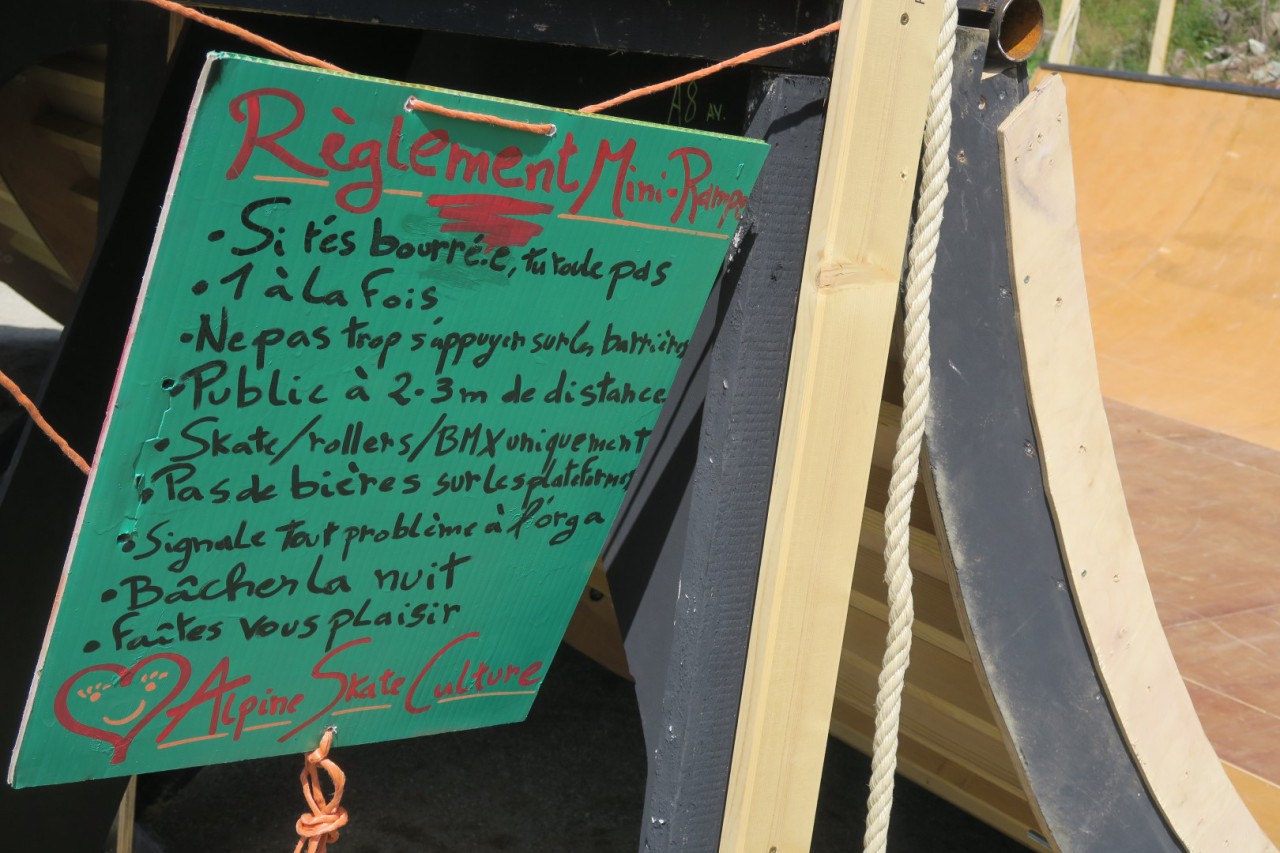 A8 AV.
Règlement Mini-Rampe
• Si t'és bourré.e, tu roule pas
• 1 à la fois
• Ne pas trop s'appuyer sur les barrières
• Public à 2-3m de distance
• Skate/rollers/BMX uniquement
• Pas de bières sur les plateformes
• Signale tout problème à l'orga
• Bâcher la nuit
• faîtes vous plaisir
Alpine Skate Culture